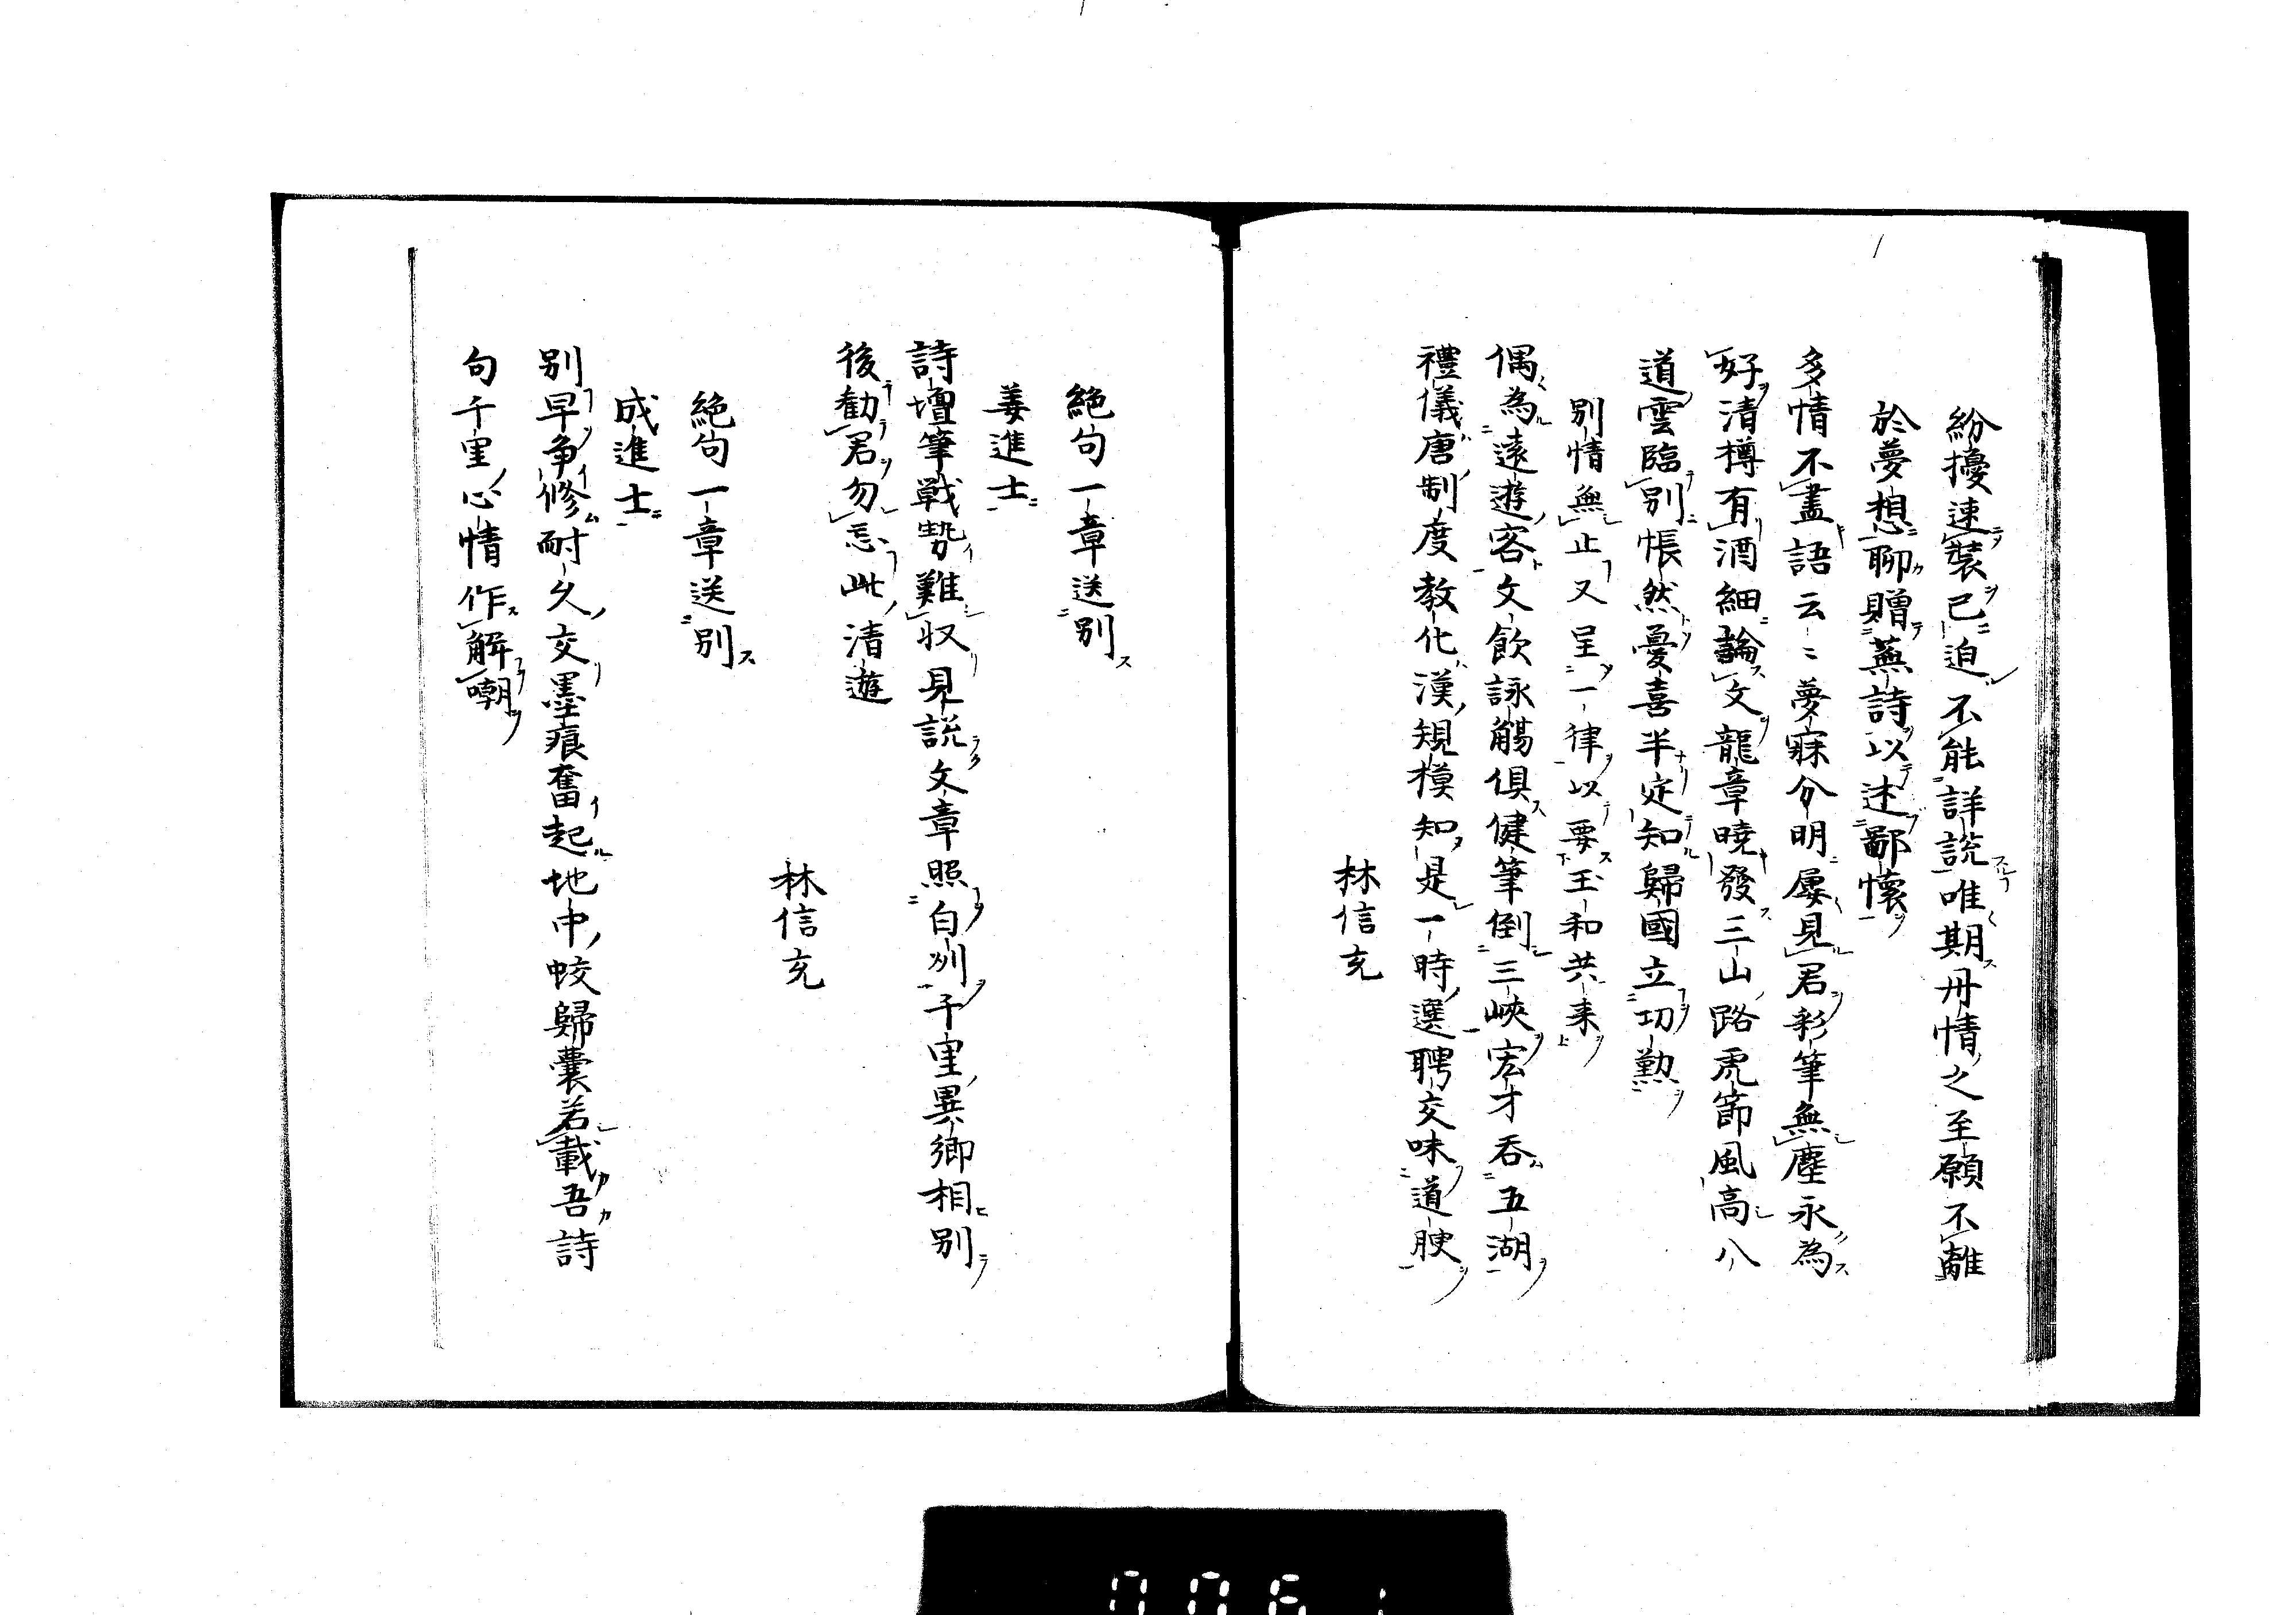 紛擾速装已迫不能詳説唯期丹情之至願不離
於夢想聊贈蕪詩以述鄙懷
多情不盡語云〻夢寐分明屡見君彩筆無塵永為
好清樽有酒細論文龍章曉發三山路虎節風高八
道雲臨別悵然憂喜半定知歸國立功勤
別情無止又呈一律以要玉和共来
偶為遠遊客文飲詠觴倶健筆倒三峽宏才吞五湖
禮儀唐制度教化漢規模知是一時選聘交味道腴
林信充
絶句一章送別
姜進士
詩壇筆戦勢難収見説文章照白州千里異郷相別
後勧君勿忘此清遊
林信充
絶句一章送別
成進士
別早争修耐久交墨痕奮起地中蛟歸嚢若載吾詩
句千里心情作解嘲
0061